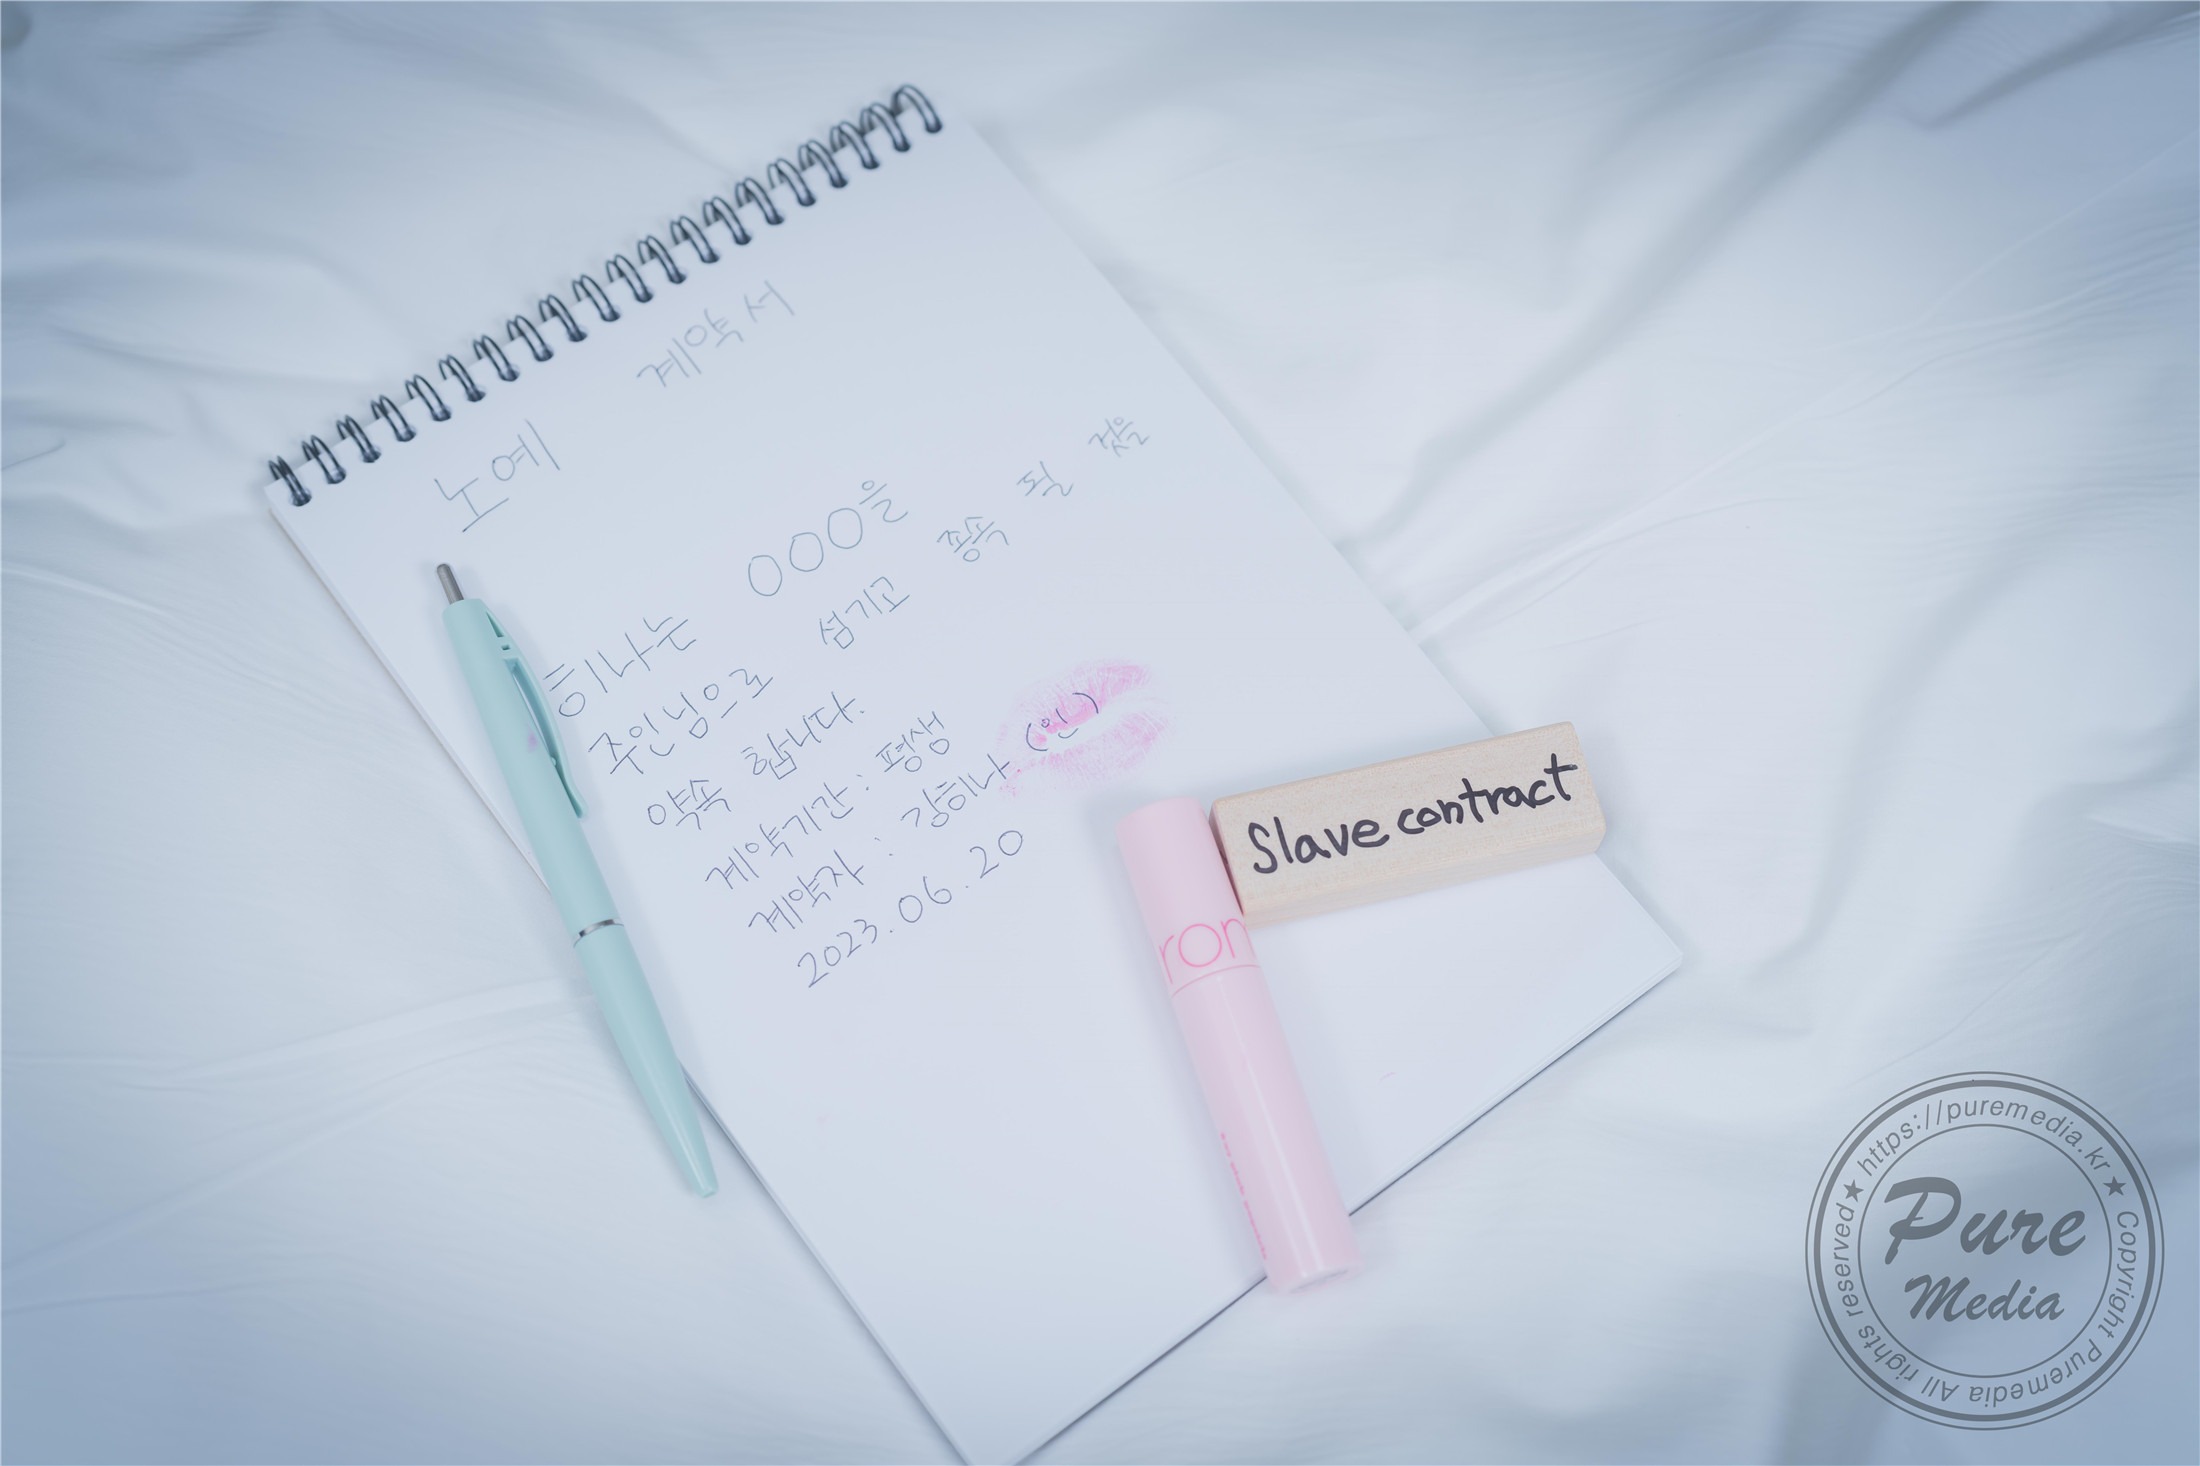 노예 계약서
히나는 OOO을
주인님으로 섬기고 종속 될 것을
약속 합니다.
계약기간 : 평생
계약자 : 김히나 (인)
2023.06.20
Slave contract
ron
https://puremedia.kr ★ Copyright Puremedia All rights reserved ★
Pure
Media